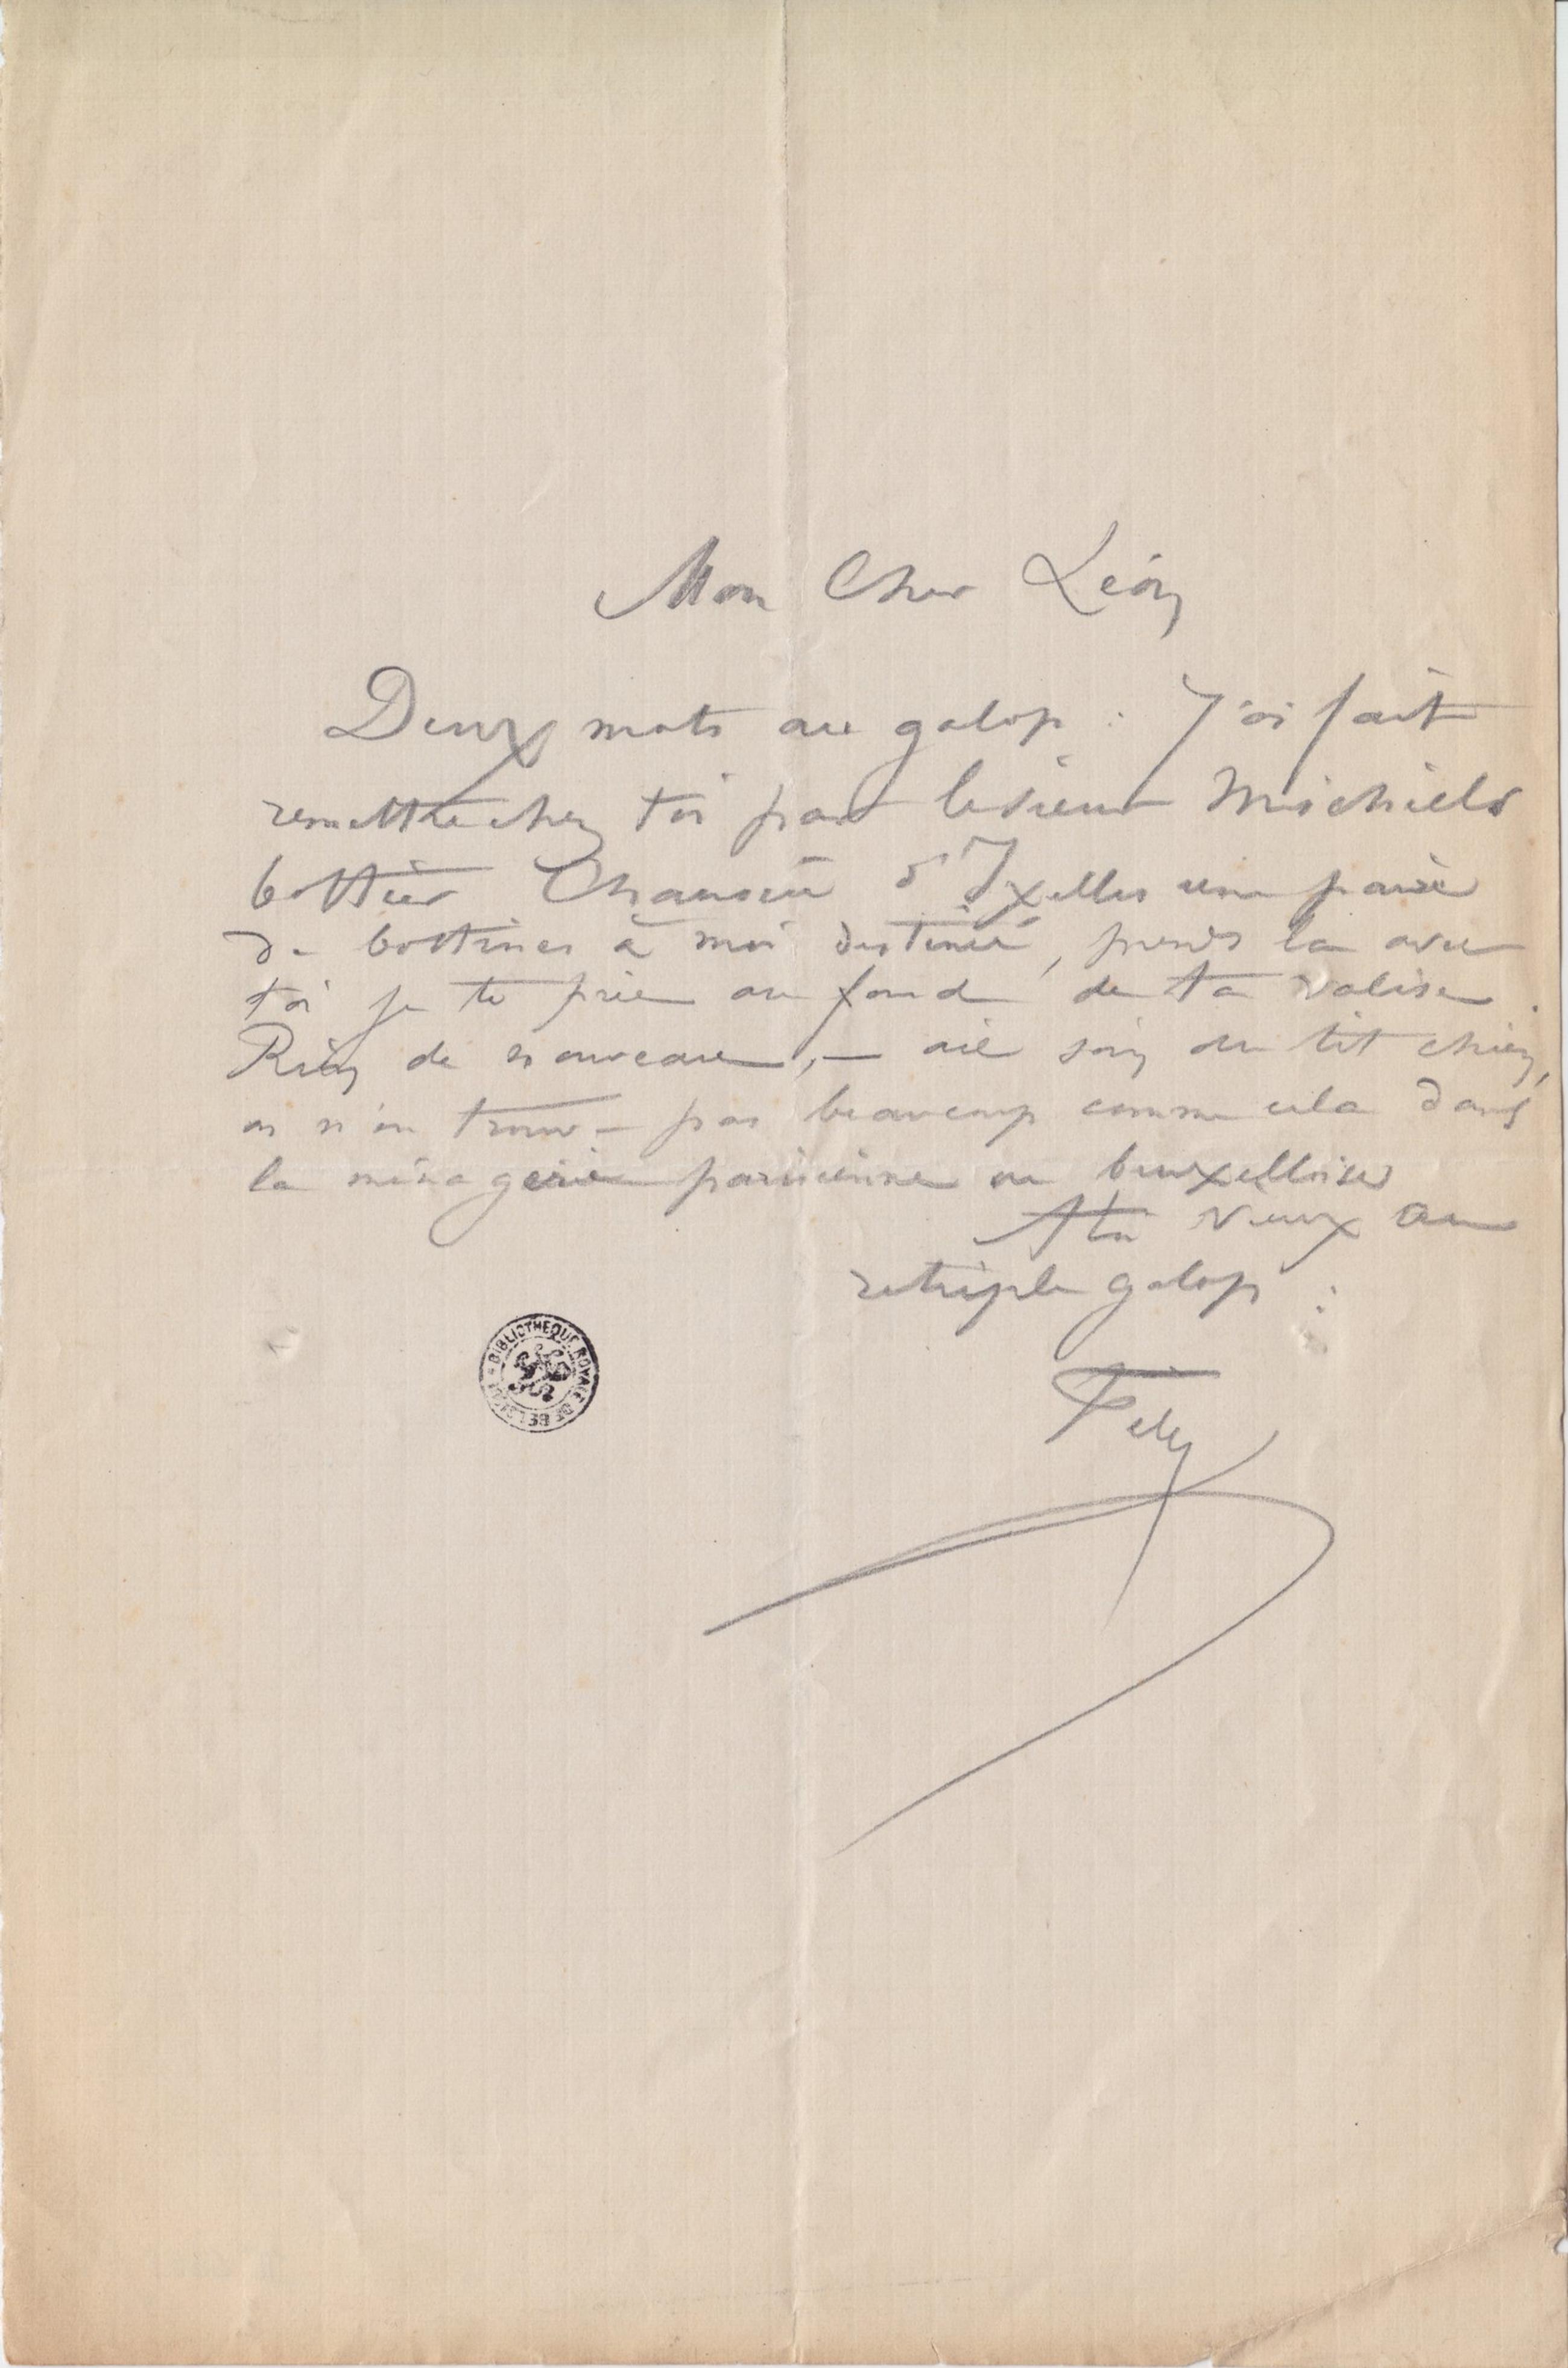 Mon Cher Léon
Deux mots au galop : J'ai fait
remettre chez toi par le sieur Michiels
bottier Chaussée d'Ixelles une paire
de bottines à moi destinée, prends la avec
toi je te prie au fond de ta valise.
Rien de nouveau, — aie soin du tit chien,
on n'en trouve pas beaucoup comme cela dans
la ménagerie parisienne ou bruxelloise
A toi vieux au
retriple galop :
Fély
BIBLIOTHEQUE ROYALE DE BELGIQUE